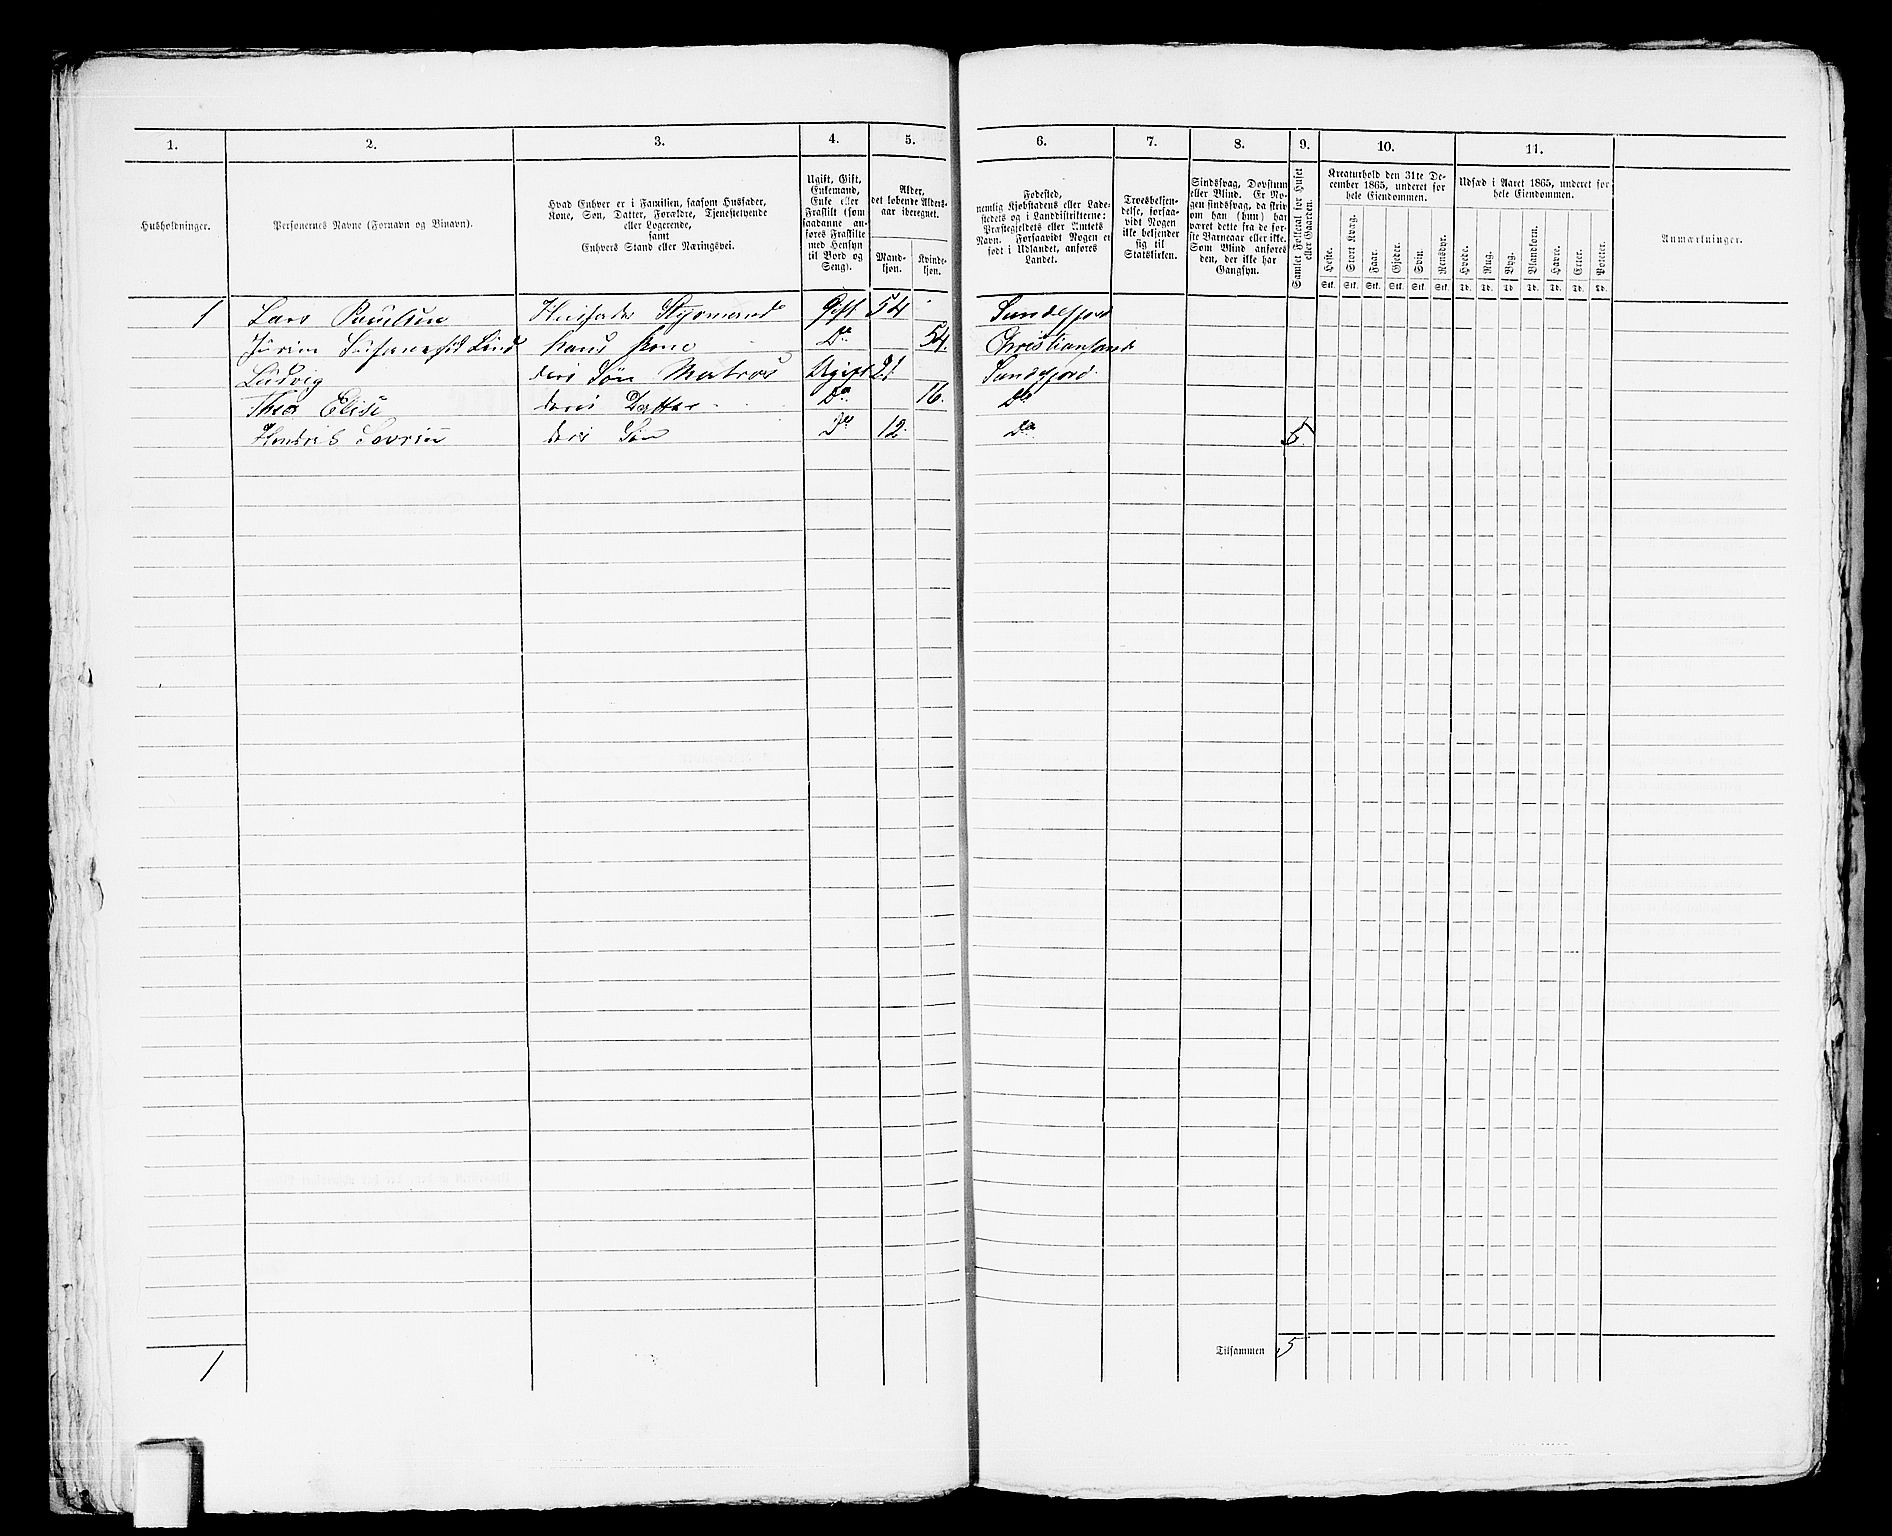 1. 2. 3. 4. 5. 6. 7. 8. 9. 10. 11.
Husholdninger.
Personernes Navne (Fornavn og Binavn).
Hvad Enhver er i Familien, saasom Husfader,
Kone, Søn, Datter, Forældre, Tjenestetyende
eller Logerende,
samt
Enhvers Stand eller Næringsvei.
Ugift, Gift,
Enkemand,
Enke eller
Fraskilt (som
saadanne an-
føres Fraskilte
med Hensyn
til Bord og
Seng).
Alder,
det løbende Alders-
aar iberegnet.
Mand-
kjøn.
Kvinde-
kjøn.
Fødested,
nemlig Kjøbstadens eller Lade-
stedets og i Landdistrikterne:
Præstegjeldets eller Amtets
Navn. Forsaavidt Nogen er
født i Udlandet, anføres
Landet.
Troesbekjen-
delse, forsaa-
vidt Nogen
ikke bekjender
sig til
Statskirken.
Sindssvag, Døvstum
eller Blind. Er No-
gen sindssvag, da skriv
om han (hun) har
været dette fra de før-
ste Barneaar eller ikke.
Som Blind anføres
den, der ikke har
Gangsyn.
Samlet Folketal for Huset
eller Gaarden.
Kreaturhold den 31te De-
cember 1865, underet for
hele Eiendommen.
Heste. Stort Kvæg. Faar. Gjeder. Svin. Rensdyr.
Stk. Stk. Stk. Stk. Stk. Stk.
Udsæd i Aaret 1865, underet for
hele Eiendommen.
Hvede. Rug. Byg. Blandkorn. Havre. Erter. Poteter.
Td. Td. Td. Td. Td. Td. Td.
Anmærkninger.
1 Lars Paulsen Husfader Styrmand Gift 54 Sandefjord
Susanne Lund hans Kone Do 54. Christiansand
Ludvig deres Søn Matros Ugift 21 Sandefjord.
Thea Elise deres Datter Do 16. Do
Hendrik Sevrin deres Søn Do 12. Do 5.
1 Tilsammen 5